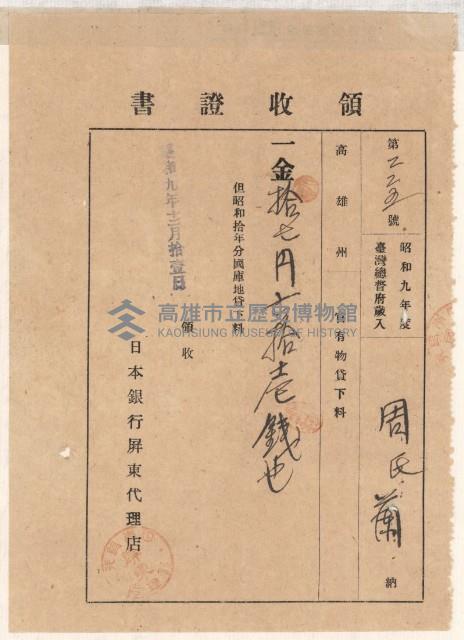 領收證書
第二二五號
昭和九年度
臺灣總督府歲入
周氏蘭納
高雄州
官有物貸下料
一金拾七円六拾壱錢也
但昭和拾年分國庫地貸下料
昭和九年十二月拾壹日
領收
日本銀行屏東代理店
高雄市立歷史博物館
KAOHSIUNG MUSEUM OF HISTORY